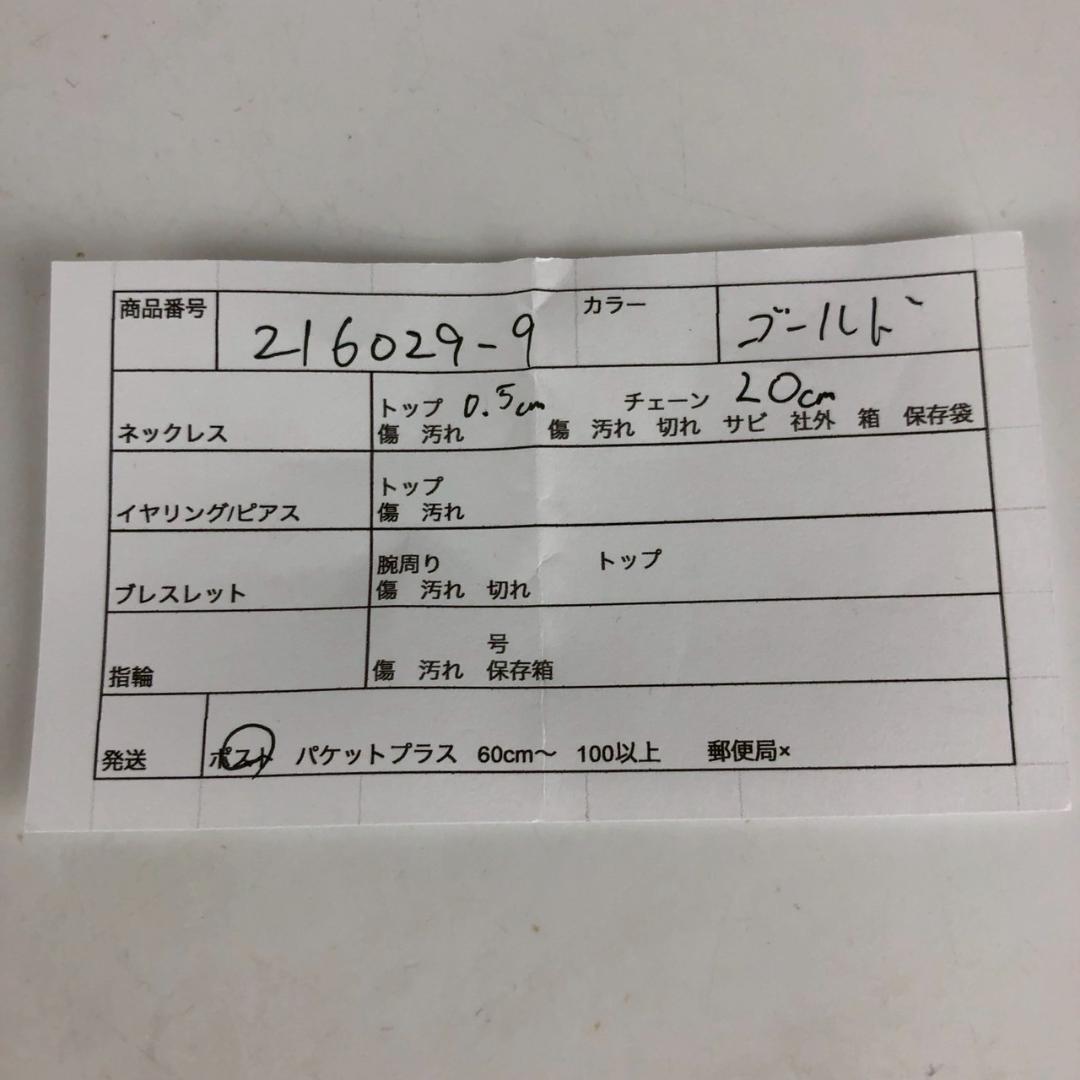 商品番号 216029-9 カラー ゴールド
トップ 0.5cm チェーン 20cm
ネックレス 傷 汚れ 傷 汚れ 切れ サビ 社外 箱 保存袋
トップ
イヤリング/ピアス 傷 汚れ
腕周り トップ
ブレスレット 傷 汚れ 切れ
号
指輪 傷 汚れ 保存箱
発送 ポスト パケットプラス 60cm〜 100以上 郵便局×